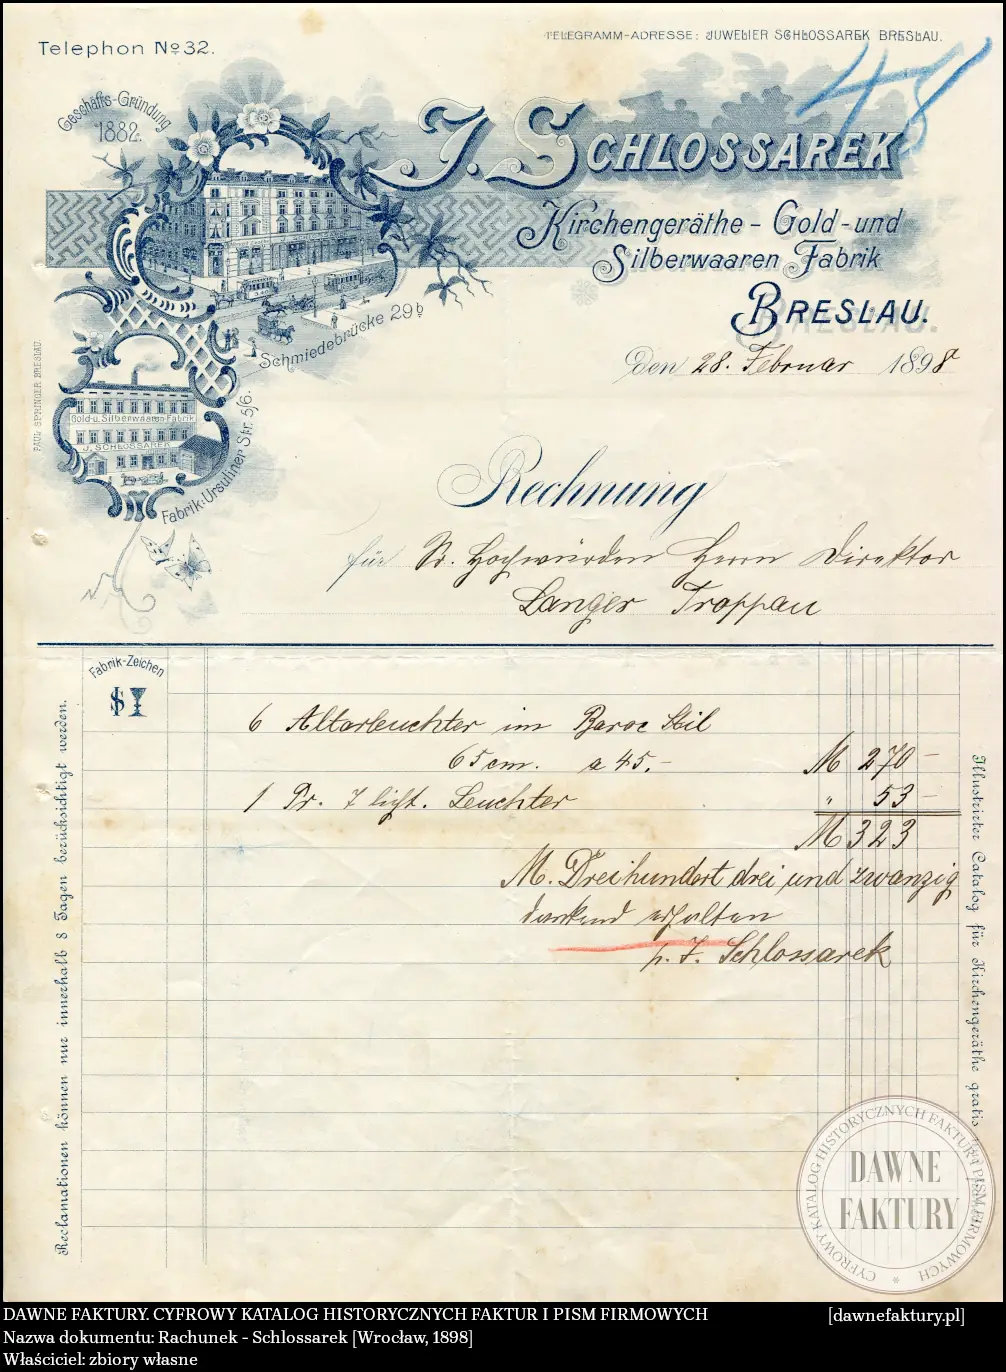 Telephon No 32.
TELEGRAMM-ADRESSE: JUWELIER SCHLOSSAREK BRESLAU.
48
Geschäfts-Gründung
1882.
J. SCHLOSSAREK
Kirchengeräthe - Gold - und
Silberwaaren Fabrik
BRESLAU.
Schmiedebrücke 29b
den 28. Februar 1898
PAUL SPRINGER BRESLAU
Gold-u. Silberwaaren-Fabrik
J. SCHLOSSAREK
Fabrik: Ursuliner Str. 5/6.
Rechnung
für Sr. Hochwürden Herrn Direktor
Langer Troppau
Fabrik-Zeichen
6 Altarleuchter im Baroc Stil
65 cm. a 45.- M 270 -
1 Pr. 7 licht. Leuchter " 53 -
M 323
M. Dreihundert drei und zwanzig
dankend erhalten
p. J. Schlossarek
Reclamationen können nur innerhalb 8 Tagen berücksichtigt werden.
Illustrirter Catalog für Kirchengeräthe gratis
DAWNE
FAKTURY
CYFROWY KATALOG HISTORYCZNYCH FAKTUR I PISM FIRMOWYCH
DAWNE FAKTURY. CYFROWY KATALOG HISTORYCZNYCH FAKTUR I PISM FIRMOWYCH [dawnefaktury.pl]
Nazwa dokumentu: Rachunek - Schlossarek [Wrocław, 1898]
Właściciel: zbiory własne